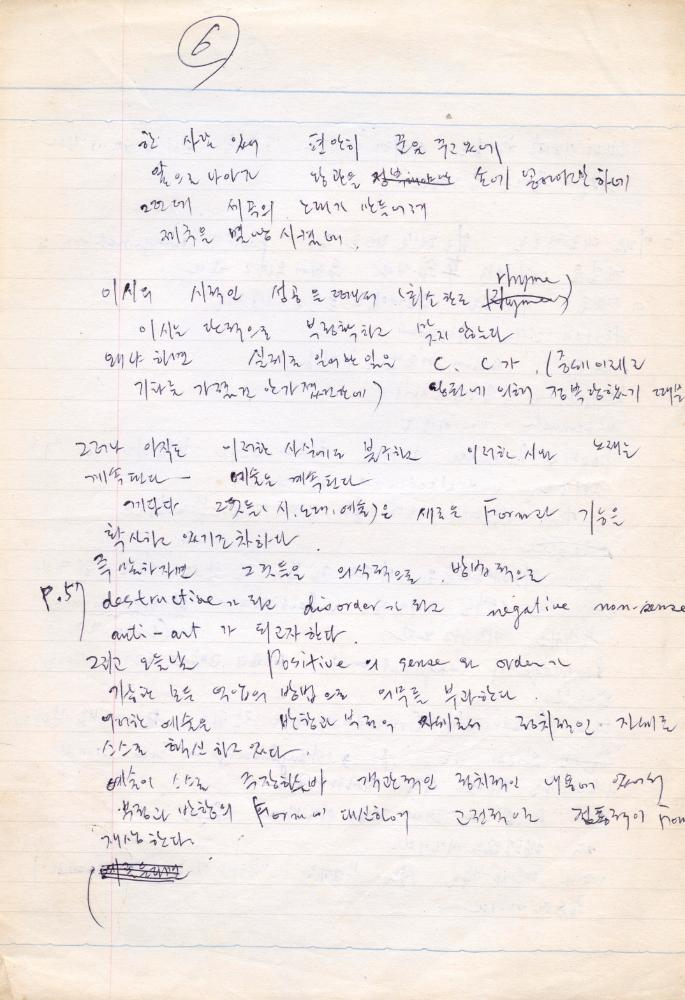 6
한 사람 있어 편안히 꿈을 꾸고 있네
앞으로 나아가 왕관을 손에 넣어야만 하네
그런데 세 폭의 노래가 만들어져
제국을 멸망 시켰네.
이 시의 시적인 성공을 떠나서 (최소한도 rhyme)
이 시는 단적으로 부정확하고 맞지 않는다
왜냐하면 실제로 일어난 일은 C. C가 (중세이래로
기타를 가졌건 안가졌건간에) 왕관에 의해 정복당했기 때문
그러나 아직도 이러한 사실에도 불구하고 이러한 시와 노래는
계속된다 — 예술은 계속된다
게다가 그것들(시.노래.예술)은 새로운 Form과 기능을
확신하고 있기조차하다.
즉 말하자면 그것들은 의식적으로, 방법적으로
P.57 destructive가 되고 disorder가 되고 negative non-sense
anti-art 가 되고자한다.
그리고 오늘날 Positive의 sense와 order가
가능한 모든 억압의 방법으로 의무를 부과한다.
이러한 예술은 반항과 부정의 자세로서 정치적인 자세로
스스로 확신하고 있다.
예술이 스스로 주장하는바 객관적인 정치적인 내용에 있어서
부정과 반항의 Form에 대신하여 고전적이고 전통적인 Form
재생한다.